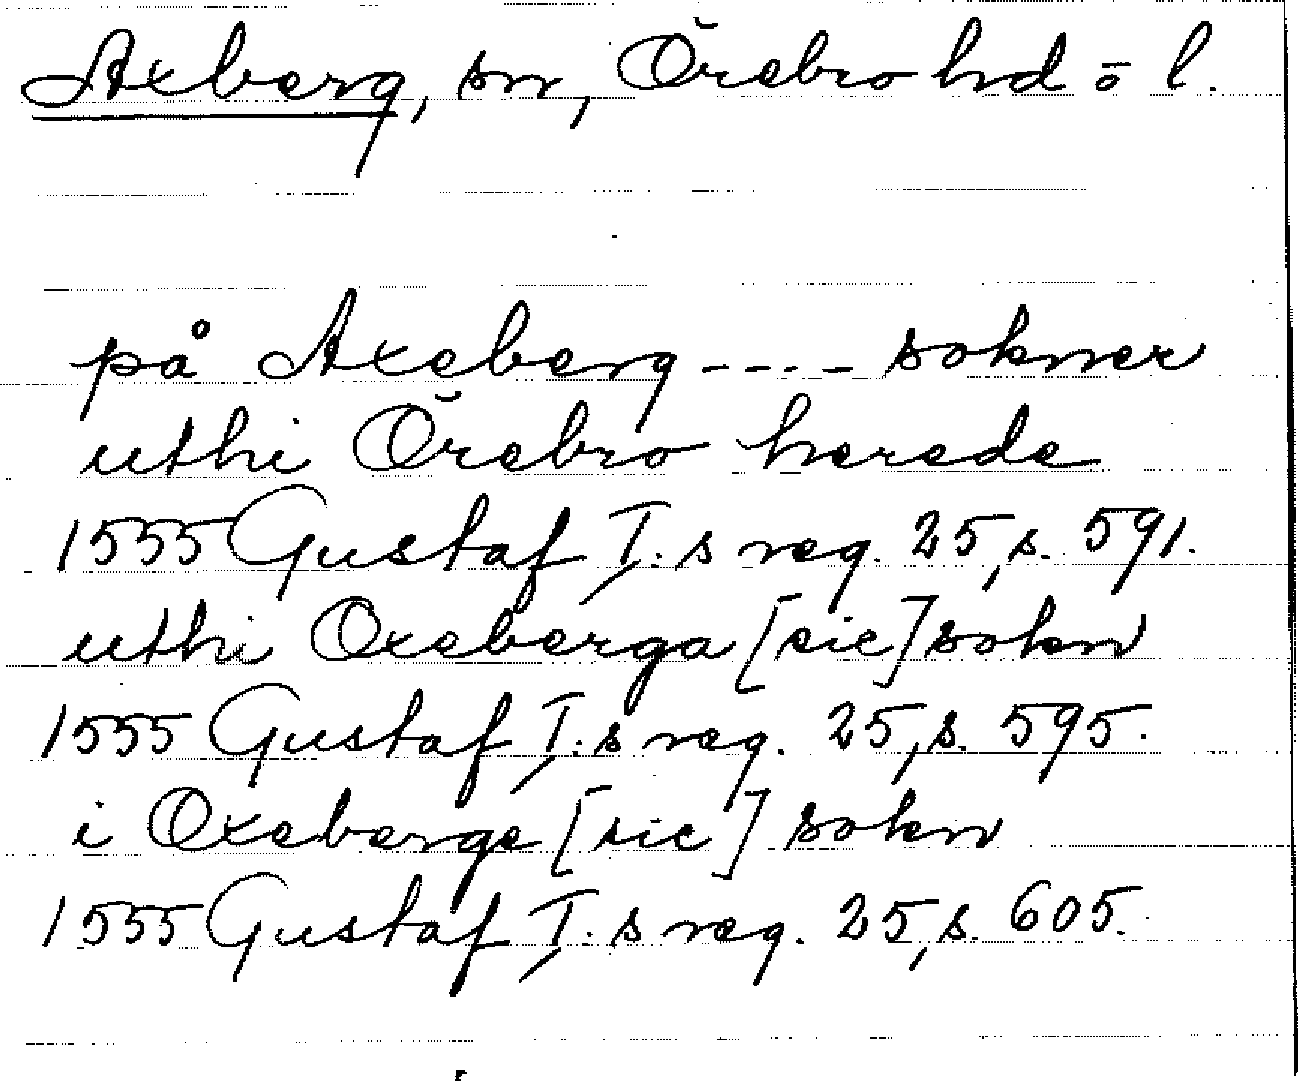 Axberg, sn, Örebro hd o l.
på Axeberg ----- sokner
uthi Örebro herede
1555 Gustaf I:s reg. 25, s. 591.
uthi Oxeberga [sic] sokn
1555 Gustaf I:s reg. 25, s. 595.
i Oxeberge [sic] sokn
1555 Gustaf I:s reg. 25, s. 605.